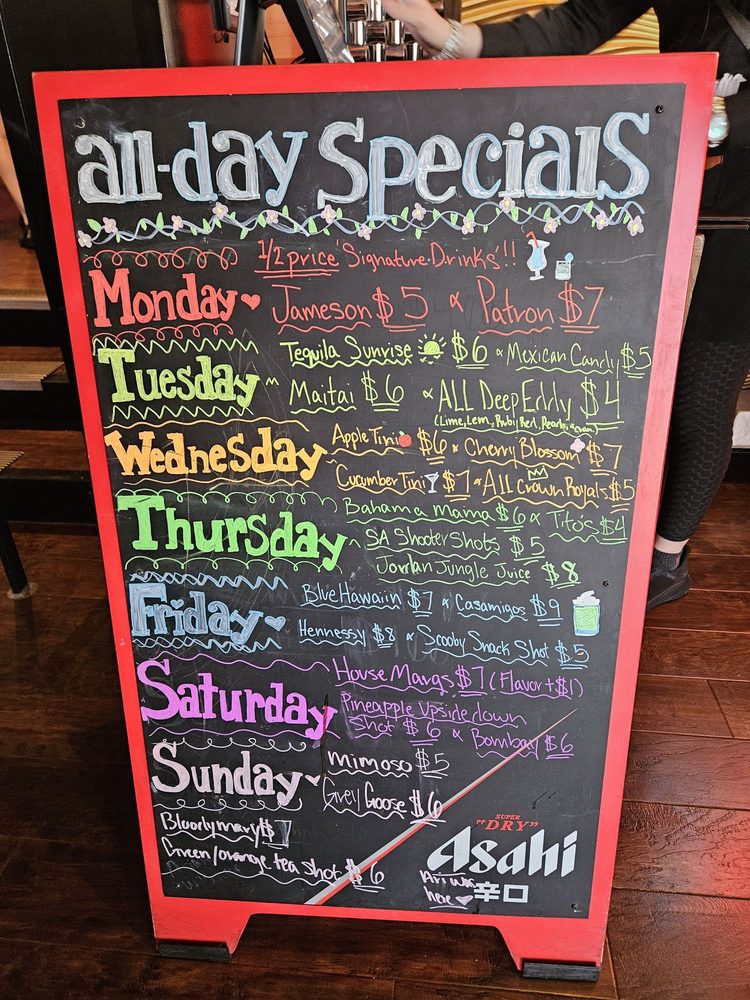 all-day Specials
1/2 price 'Signature Drinks'!!
Monday Jameson $5 & Patron $7
Tequila Sunrise $6 & Mexican Candy $5
Tuesday ~ Maitai $6 & ALL Deep Eddy $4
(Lime, Lem, Ruby Red, Peach,
Wednesday Apple Tini $6 & Cherry Blossom $7
~Cucumber Tini $7 & All Crown Royals $5
Thursday Bahama Mama $6 & Tito's $4
SA Shooter Shots $5
Jordan Jungle Juice $8
Friday Blue Hawaiin $7 & Casamigos $9
Hennessy $8 & Scooby Snack Shot $5
Saturday House Margs $7 (Flavor +$1)
Pineapple upside down
Shot $6 & Bombay $6
Sunday~ Mimoso $5
Grey Goose $6
Bloodymary $7
Green/orange tea shot $6
SUPER
"DRY"
Asahi
Ari was
here
辛口